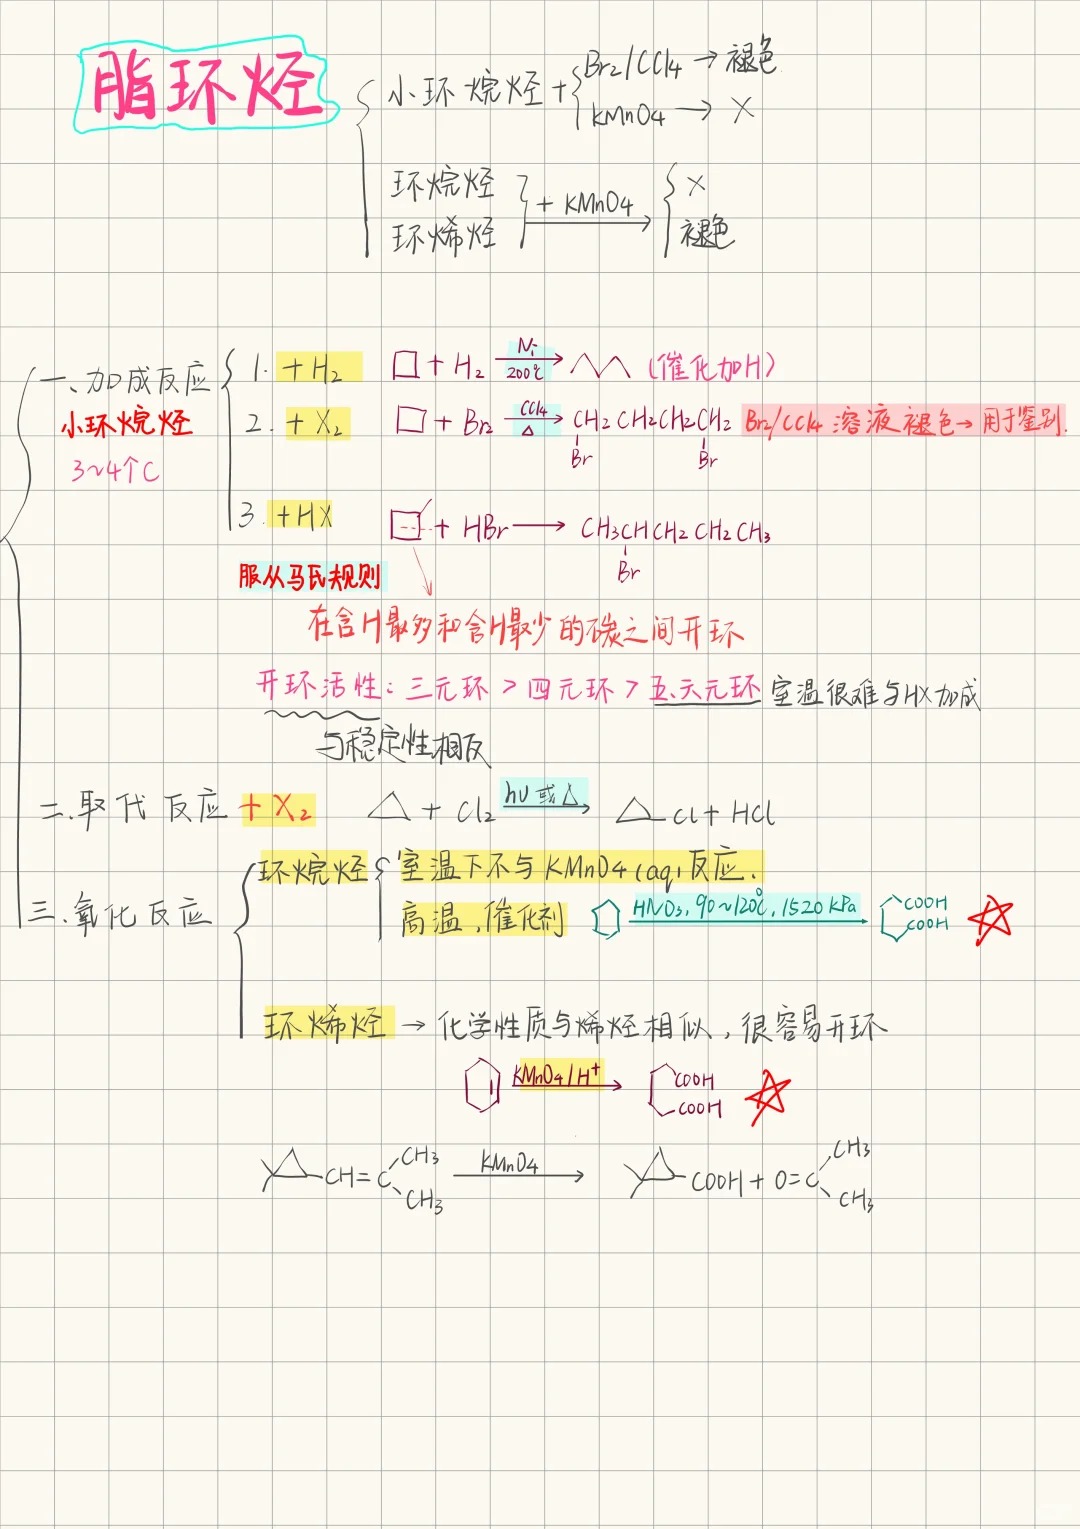 脂环烃
小环烷烃 + Br2/CCl4 → 褪色
KMnO4 → ×
环烷烃
环烯烃
+ KMnO4
×
褪色
一、加成反应
小环烷烃
3~4个C
1. + H2
□ + H2 Ni 200℃ → (催化加H)
2. + X2
□ + Br2 CCl4 △ → CH2CH2CH2CH2 Br2/CCl4 溶液褪色→用于鉴别.
Br Br
3. + HX
+ HBr → CH3CHCH2CH2CH3
Br
服从马氏规则
在含H最多和含H最少的碳之间开环
开环活性: 三元环 > 四元环 > 五、六元环 室温很难与HX加成
与稳定性相反
二.取代反应 + X2 △ + Cl2 hυ 或△ → △-Cl + HCl
三.氧化反应
环烷烃 室温下不与KMnO4(aq)反应.
高温,催化剂 HNO3, 90~120℃, 1520 kPa COOH
COOH
环烯烃 → 化学性质与烯烃相似,很容易开环
KMnO4/H+ COOH
COOH
CH=C CH3 CH3 KMnO4 → COOH + O=C CH3 CH3